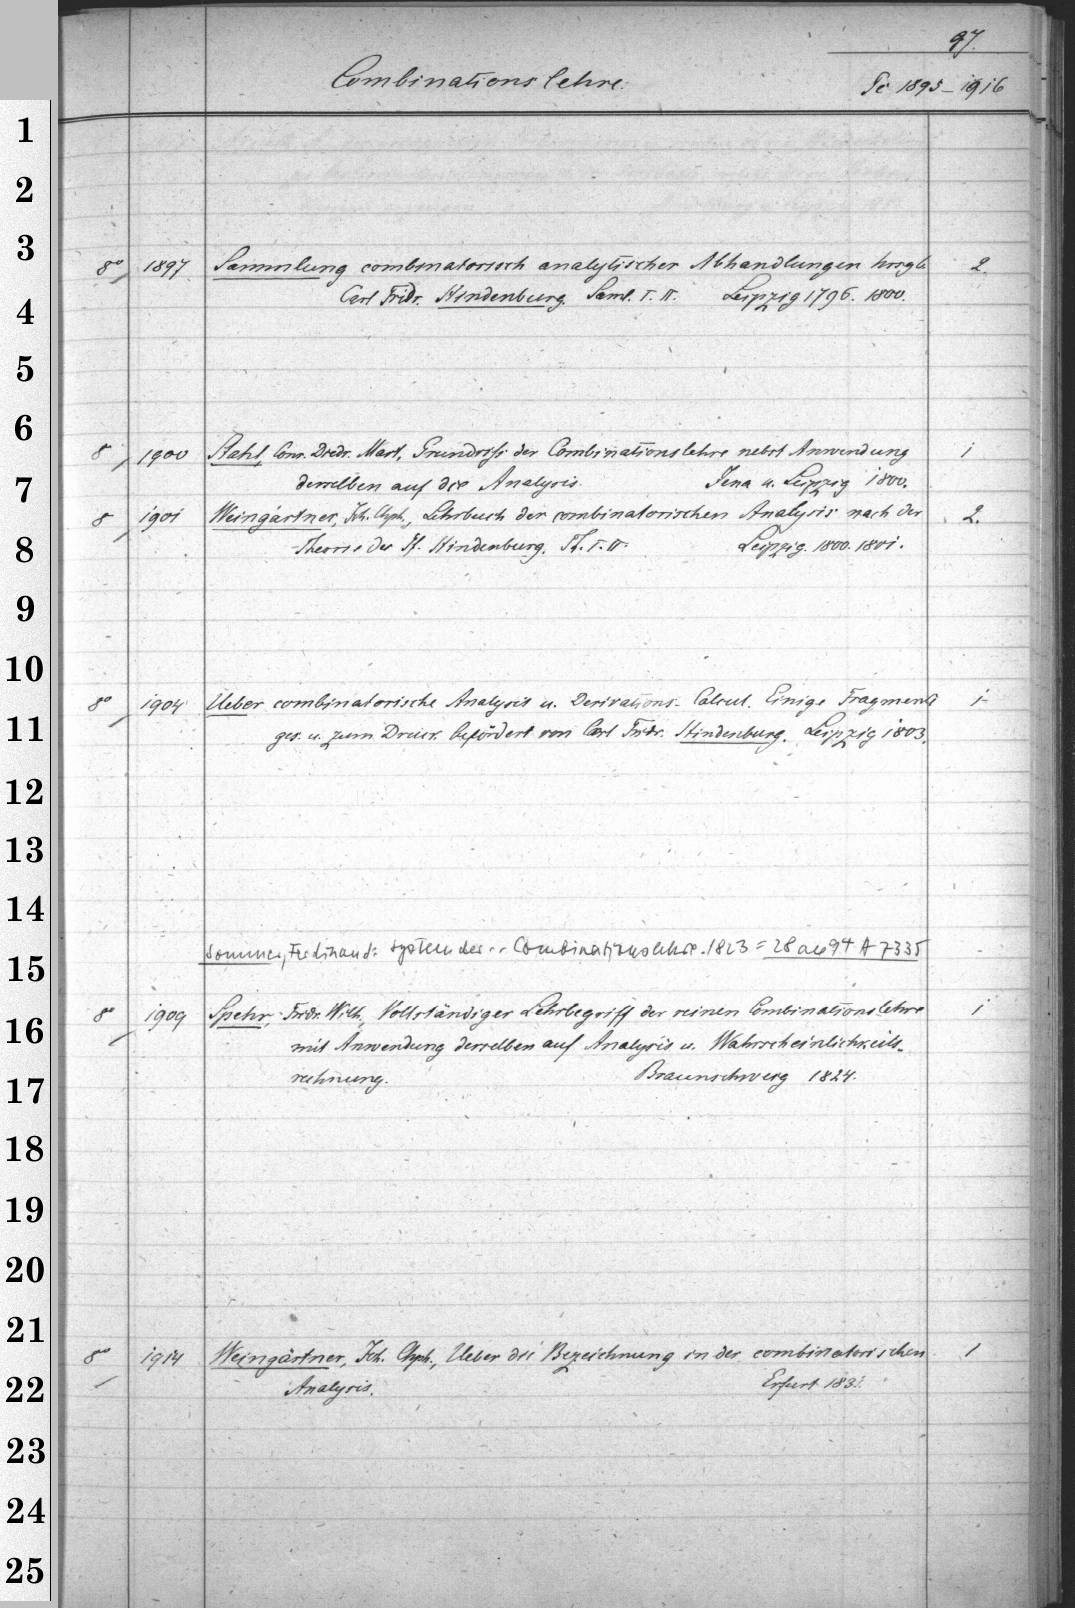 97.
Combinationslehre.
Sc 1895-1916
1
2
3
8° 1897 Sammlung combinatorisch analytischer Abhandlungen hrsgb 2.
Carl Fridr. Hindenburg. Saml. I. II. Leipzig 1796. 1800.
4
5
6
8 1900 Stahl, Conr. Dedr. Mart, Grundriss der Combinationslehre nebst Anwendung 1
7
derselben auf die Analysis. Jena u. Leipzig 1800.
8 1901 Weingärtner, Joh. Chph., Lehrbuch der combinatorischen Analysis nach der 2.
8
Theorie des Hindenburg. Th. I. II. Leipzig. 1800. 1801.
9
10
8° 1904 Ueber combinatorische Analysis u. Derivations-Calcul. Einige Fragmente 1
11
ges. u. zum Druck befördert von Carl Fridr. Hindenburg. Leipzig 1803.
12
13
14
Sommer, Ferdinand: System der .. Combinationslehre. 1823 = 28 94 A 7335
15
8° 1909 Spehr, Fridr. Wilh., Vollständiger Lehrbegriff der reinen Combinationslehre 1
16
mit Anwendung derselben auf Analysis u. Wahrscheinlichkeits-
17
rechnung. Braunschweig 1824.
18
19
20
21
8° 1914 Weingärtner, Joh. Chph., Ueber die Bezeichnung in der combinatorischen 1
22
Analysis. Erfurt
23
24
25